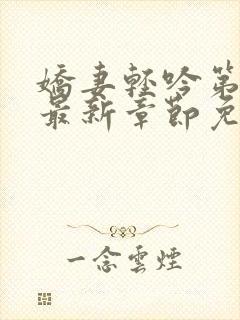 嬌妻輕吟第
最新章節免
一念雲煙